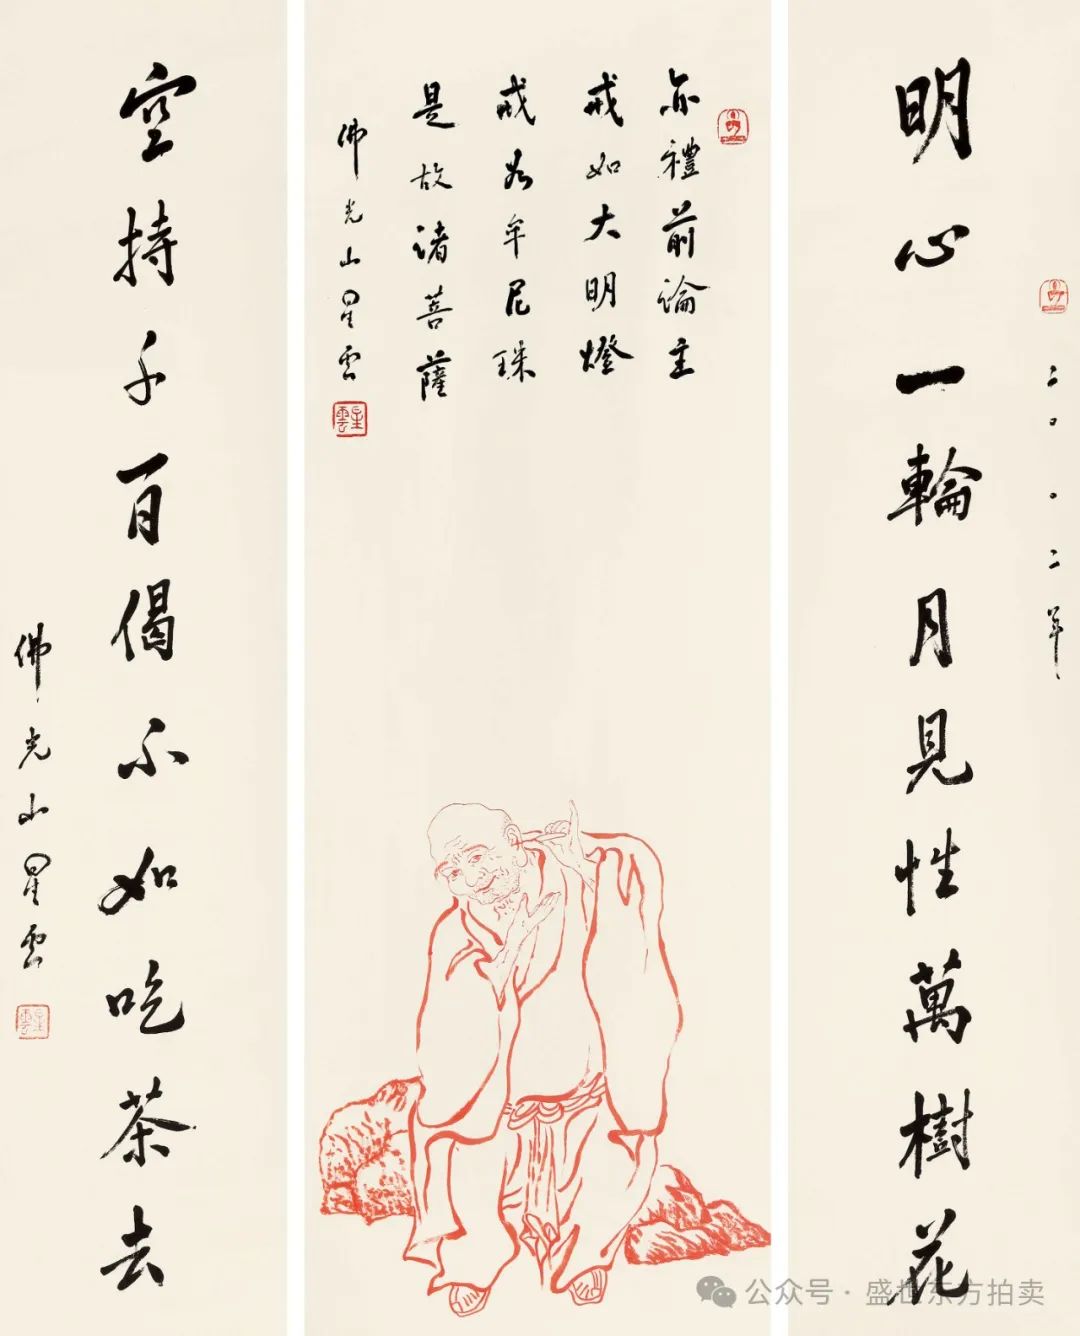 二〇〇二年
明心一輪月見性萬樹花
亦禮前論主
戒如大明燈
戒牟尼珠
是故諸菩薩
佛光山星雲
星雲
空持千百偈不如吃茶去
佛光山星雲
星雲
公众号·盛世东方拍卖